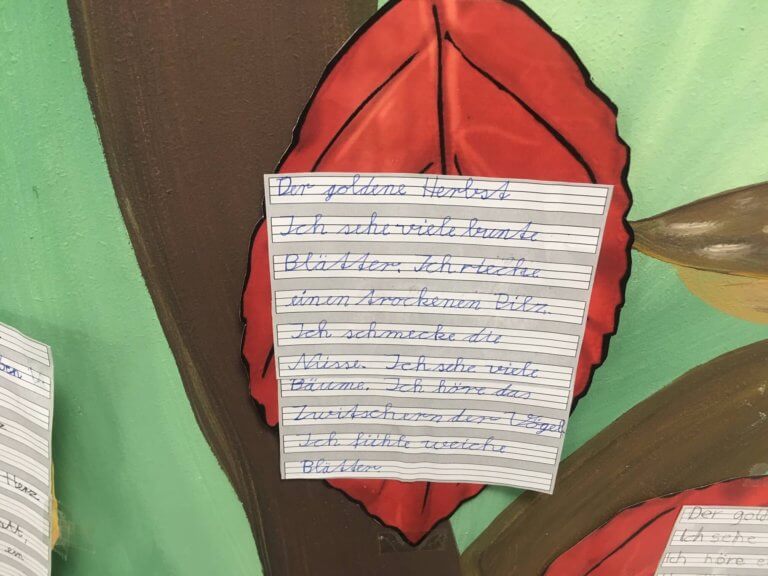 Der goldene Herbst
Ich sehe viele bunte
Blätter. Ich rieche
einen trockenen Pilz.
Ich schmecke die
Nüsse. Ich sehe viele
Bäume. Ich höre das
Zwitschern der Vögel
Ich fühle weiche
Blätter.
Herz
ein
Der gold
Ich sehe
Ich höre e